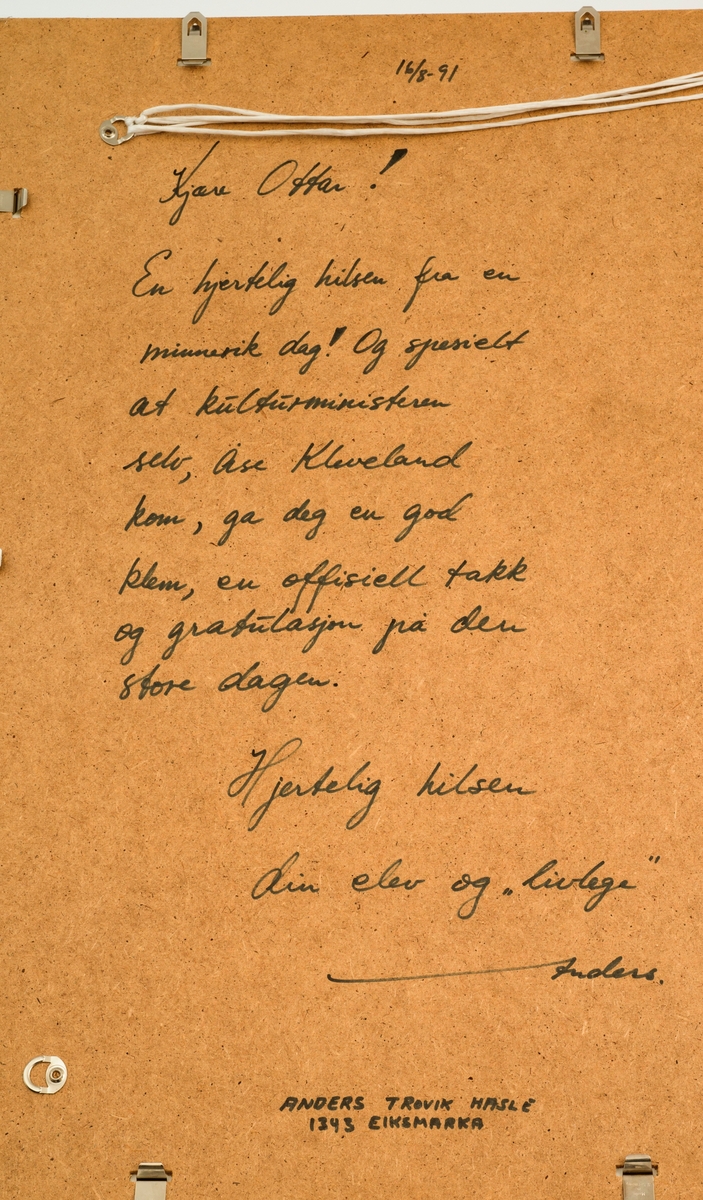 16/8-91
Kjære Ottar!
En hjertelig hilsen fra en
minnerik dag! Og spesielt
at kulturministeren
selv, Åse Kleveland
kom, ga deg en god
klem, en offisiell takk
og gratulasjon på den
store dagen.
Hjertelig hilsen
din elev og „livlege"
Anders.
ANDERS TROVIK HASLE
1343 EIKSMARKA